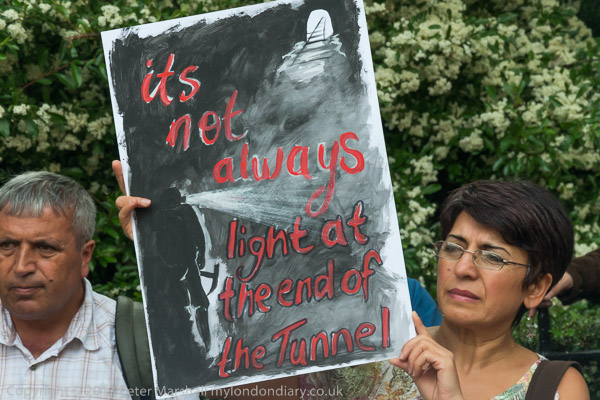 its
not
always
light at
the end of
the Tunnel
Peter Marshall mylondondiary.co.uk